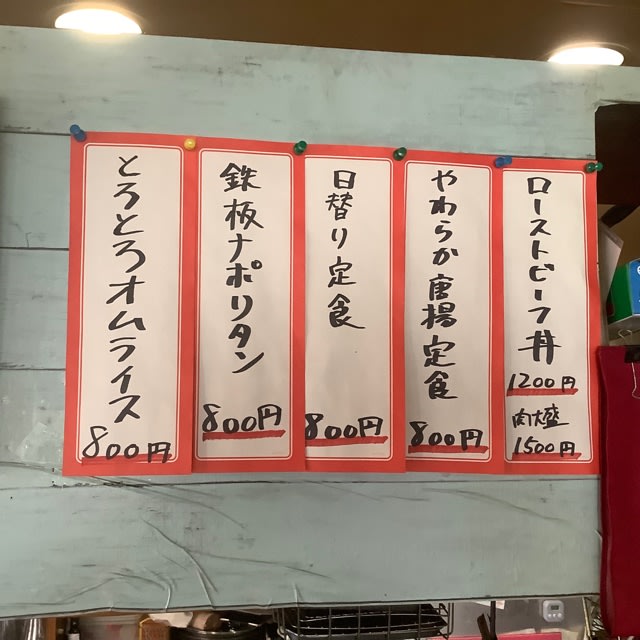 ローストビーフ丼
1200円
肉大盛
1500円
やわらか唐揚定食
800円
日替り定食
800円
鉄板ナポリタン
800円
とろとろオムライス
800円